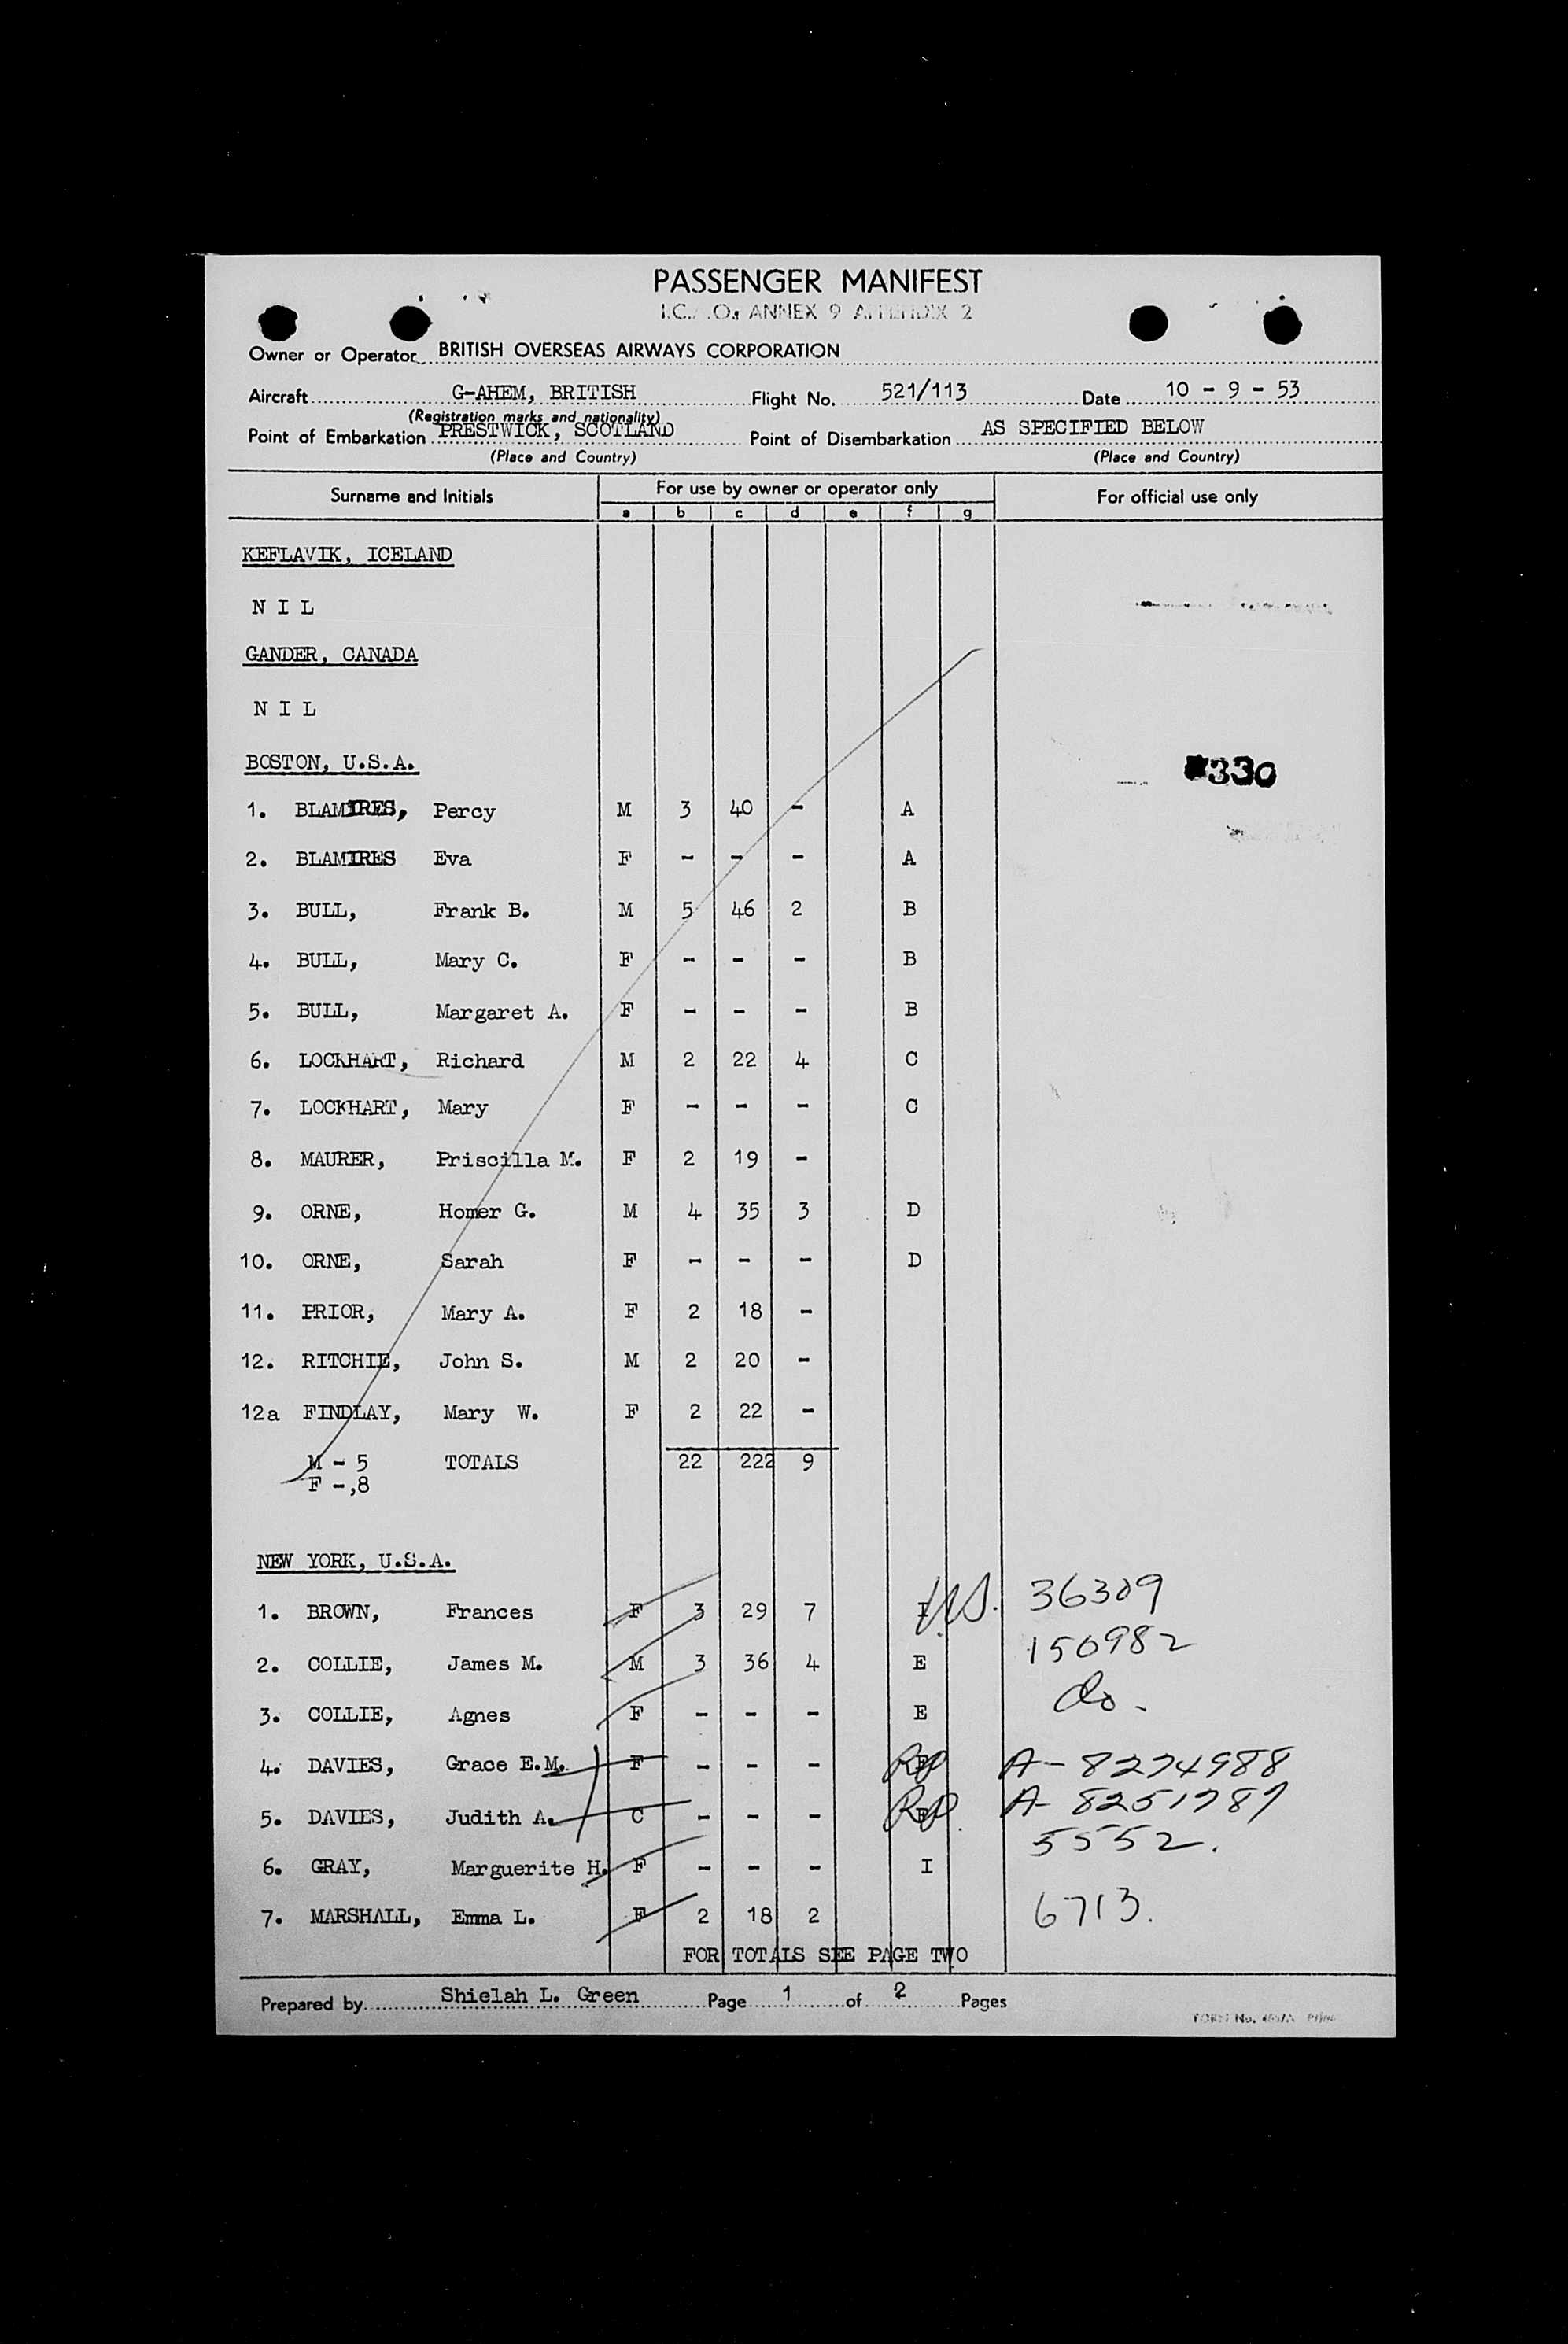 PASSENGER MANIFEST
ANNEX 9 APPENDIX 2
Owner or Operator BRITISH OVERSEAS AIRWAYS CORPORATION
Aircraft G-AHEM, BRITISH Flight No. 521/113 Date 10 - 9 - 53
(Registration marks and nationality)
Point of Embarkation PRESTWICK, SCOTLAND Point of Disembarkation AS SPECIFIED BELOW
(Place and Country) (Place and Country)
Surname and Initials For use by owner or operator only For official use only
a b c d e f g
KEFLAVIK, ICELAND
N I L
GANDER, CANADA
N I L
BOSTON, U.S.A. 330
1. BLAMIRES, Percy M 3 40 - A
2. BLAMIRES Eva F - - - A
3. BULL, Frank B. M 5 46 2 B
4. BULL, Mary C. F - - - B
5. BULL, Margaret A. F - - - B
6. LOCKHART, Richard M 2 22 4 C
7. LOCKHART, Mary F - - - C
8. MAURER, Priscilla M. F 2 19 -
9. ORNE, Homer G. M 4 35 3 D
10. ORNE, Sarah F - - - D
11. PRIOR, Mary A. F 2 18 -
12. RITCHIE, John S. M 2 20 -
12a FINDLAY, Mary W. F 2 22 -
M - 5 TOTALS 22 222 9
F -,8
NEW YORK, U.S.A.
1. BROWN, Frances F 3 29 7 I U.S. 36309
2. COLLIE, James M. M 3 36 4 E 150982
3. COLLIE, Agnes F - - - E do -
4. DAVIES, Grace E.M. F - - - A-8274988
5. DAVIES, Judith A. C - - - A-8251787
6. GRAY, Marguerite H. F - - - I 5552.
7. MARSHALL, Emma L. F 2 18 2 6713.
FOR TOTALS SEE PAGE TWO
Prepared by Shielah L. Green Page 1 of 2 Pages
FORM No.